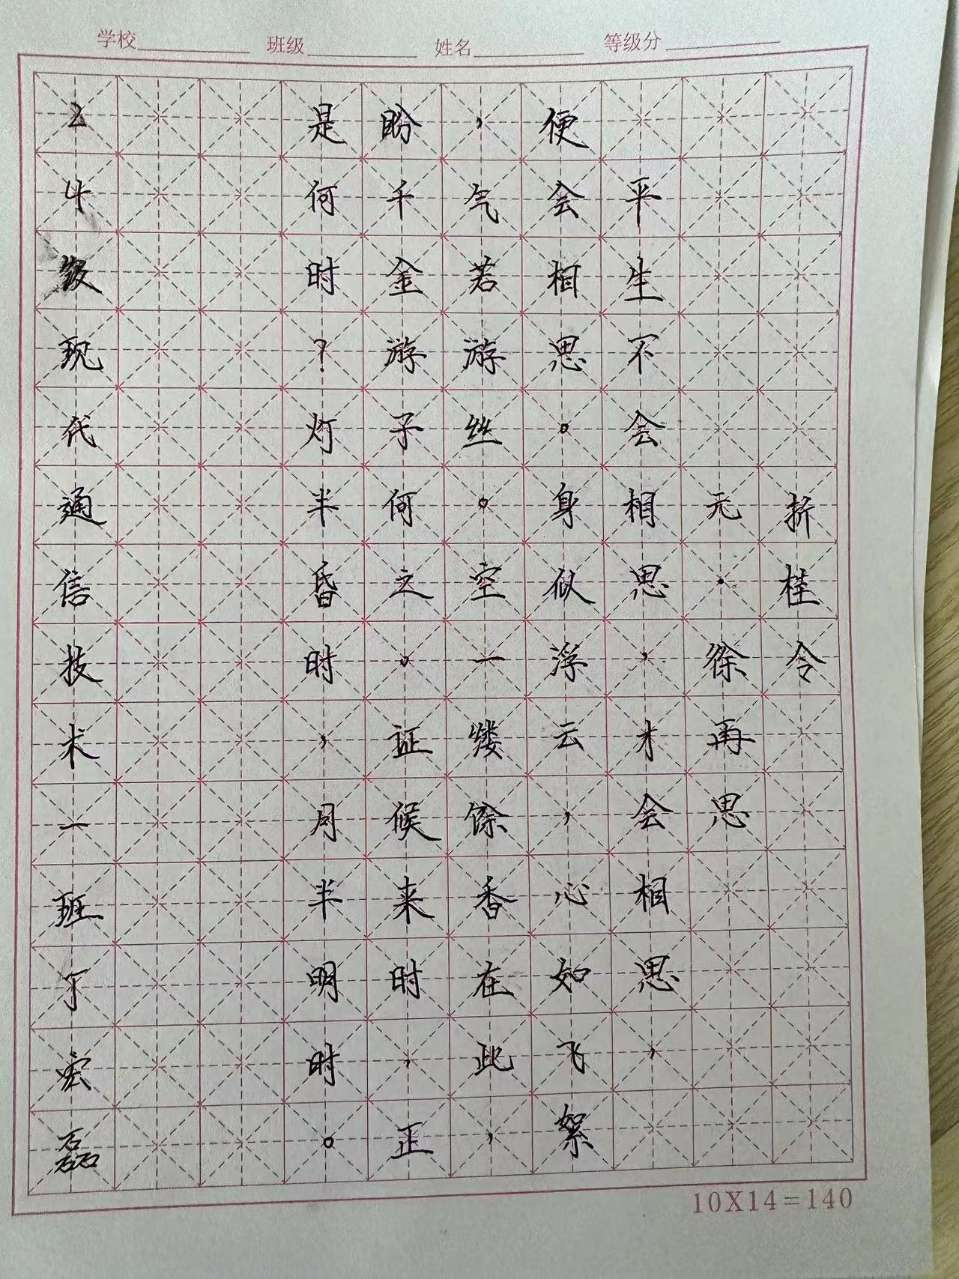 学校 班级 姓名 等级分
折桂令
元·徐再思
平生不会相思,才会相思,
便会相思。身似浮云,心如飞絮
,气若游丝。空一缕馀香在此,
盼千金游子何之。证候来时,正
是何时?灯半昏时,月半明时。
24级现代通信技术一班丁宏磊
10X14=140